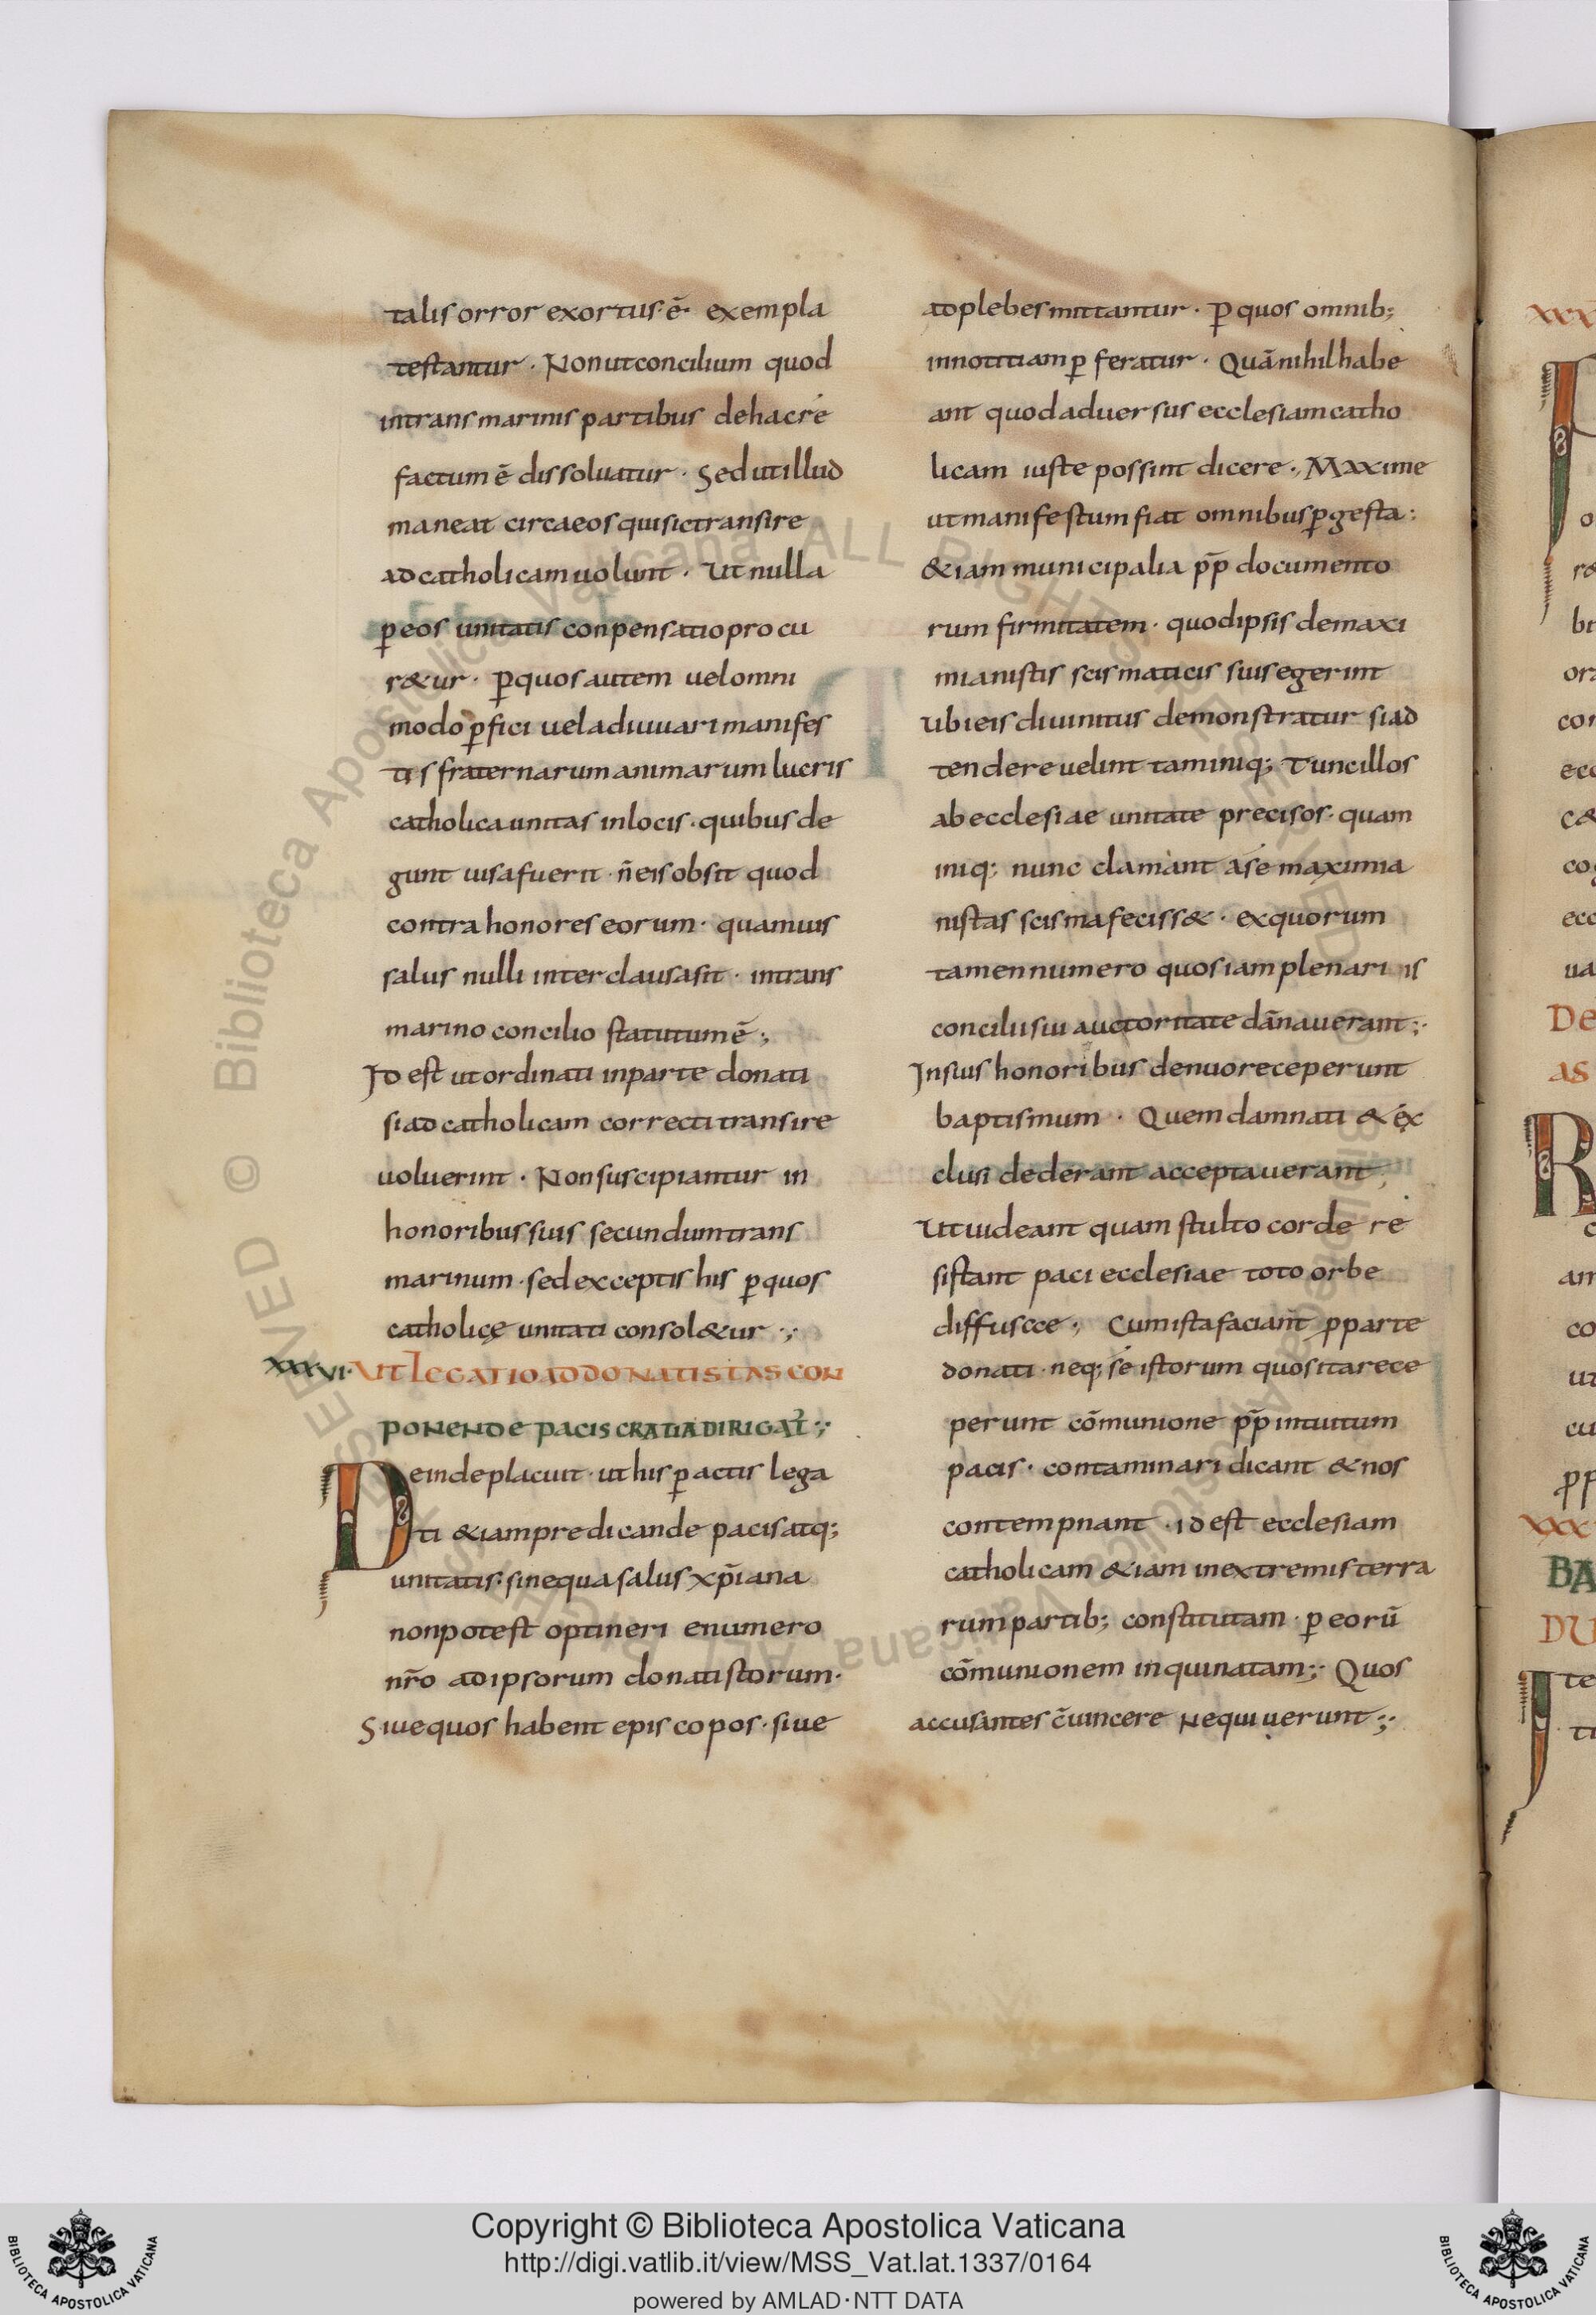 talis orror exortus ē· exempla
testantur · Non ut concilium quod
in trans marinis partibus de hac re
factum ē dissoluatur · Sed ut illud
maneat circa eos qui sic transire
ad catholicam uolunt · Ut nulla
ꝑ eos unitatis conpensatio procu
r&ur · ꝑ quos autem uel omni
modo ꝑfici uel adiuuari manifes
tis fraternarum animarum lucris
catholica unitas in locis · quibus de
gunt uisa fuerit · n̄ eis obsit quod
contra honores eorum · quamuis
salus nulli inter clausa sit · in trans
marino concilio statutum ē ;
Id est ut ordinati in parte donati
si ad catholicam correcti transire
uoluerint · Non suscipiantur in
honoribus suis secundum trans
marinum · sed exceptis his ꝑ quos
catholicę unitati consol&ur ·;
XXXVI· UT LEGATIO AD DONATISTAS CON
PONENDE PACIS GRATIA DIRIGAT̄ ;
Deinde placuit · ut his ꝑactis lega
ti &iam predicande pacis atq;
unitatis · sine qua salus xp̄iana
non potest optineri e numero
nr̄o ad ipsorum donatistorum ·
Siue quos habent episcopos · siue
ad plebes mittantur · ꝑ quos omnib;
in notitiam ꝑferatur · Quā nihil habe
ant quod aduersus ecclesiam catho
licam iuste possint dicere ., Maxime
ut manifestum fiat omnibus ꝑ gesta :
&iam municipalia pp̄ documento
rum firmitatem · quod ipsis de maxi
mianistis scismaticis suis egerint
Ubi eis diuinitus demonstratur si ad
tendere uelint tam iniq; Tunc illos
ab ecclesiae unitate precisos · quam
iniq; nunc clamant a se maximia
nistas scisma feciss& · ex quorum
tamen numero quos iam plenariis
concilii sui auctoritate dānauerant ;·
In suis honoribus denuo receperunt
baptismum · Quem damnati & ex
clusi dederant acceptauerant ;
Ut uideant quam stulto corde re
sistant paci ecclesiae toto orbe
diffuscce ·, Cum ista faciant ꝓ parte
donati · neq; se istorum quos ita rece
perunt cōmunione pp̄ intuitum
pacis · contaminari dicant & nos
contempnant · id est ecclesiam
catholicam &iam in extremis terra
rum partib; constitutam · ꝑ eorū
cōmunionem inquinatam ;· Quos
accusantes c̄uincere nequiuerunt ;·
© Biblioteca Apostolica Vaticana ALL RIGHTS RESERVED
Copyright © Biblioteca Apostolica Vaticana
http://digi.vatlib.it/view/MSS_Vat.lat.1337/0164
powered by AMLAD·NTT DATA
BIBLIOTECA APOSTOLICA VATICANA
BIBLIOTECA APOSTOLICA VATICANA